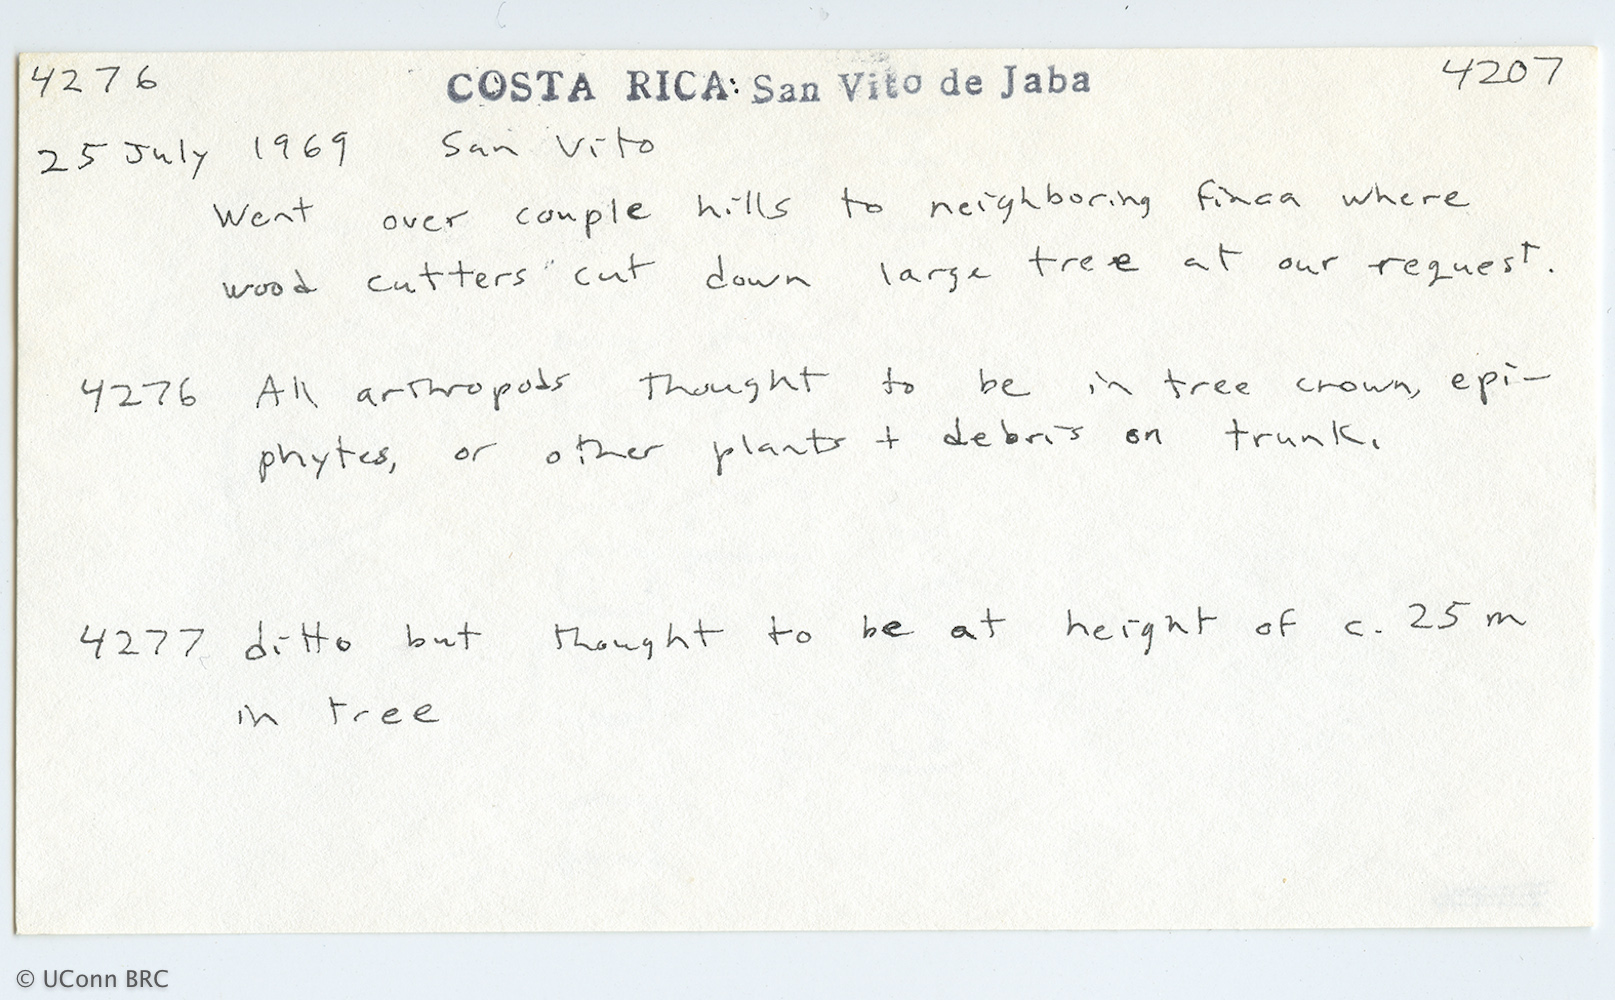 4276 COSTA RICA: San Vito de Jaba 4207
25 July 1969 San Vito
Went over couple hills to neighboring finca where
wood cutters cut down large tree at our request.
4276 All arthropods thought to be in tree crown, epi-
phytes, or other plants + debris on trunk.
4277 ditto but thought to be at height of c. 25 m
in tree
© UConn BRC